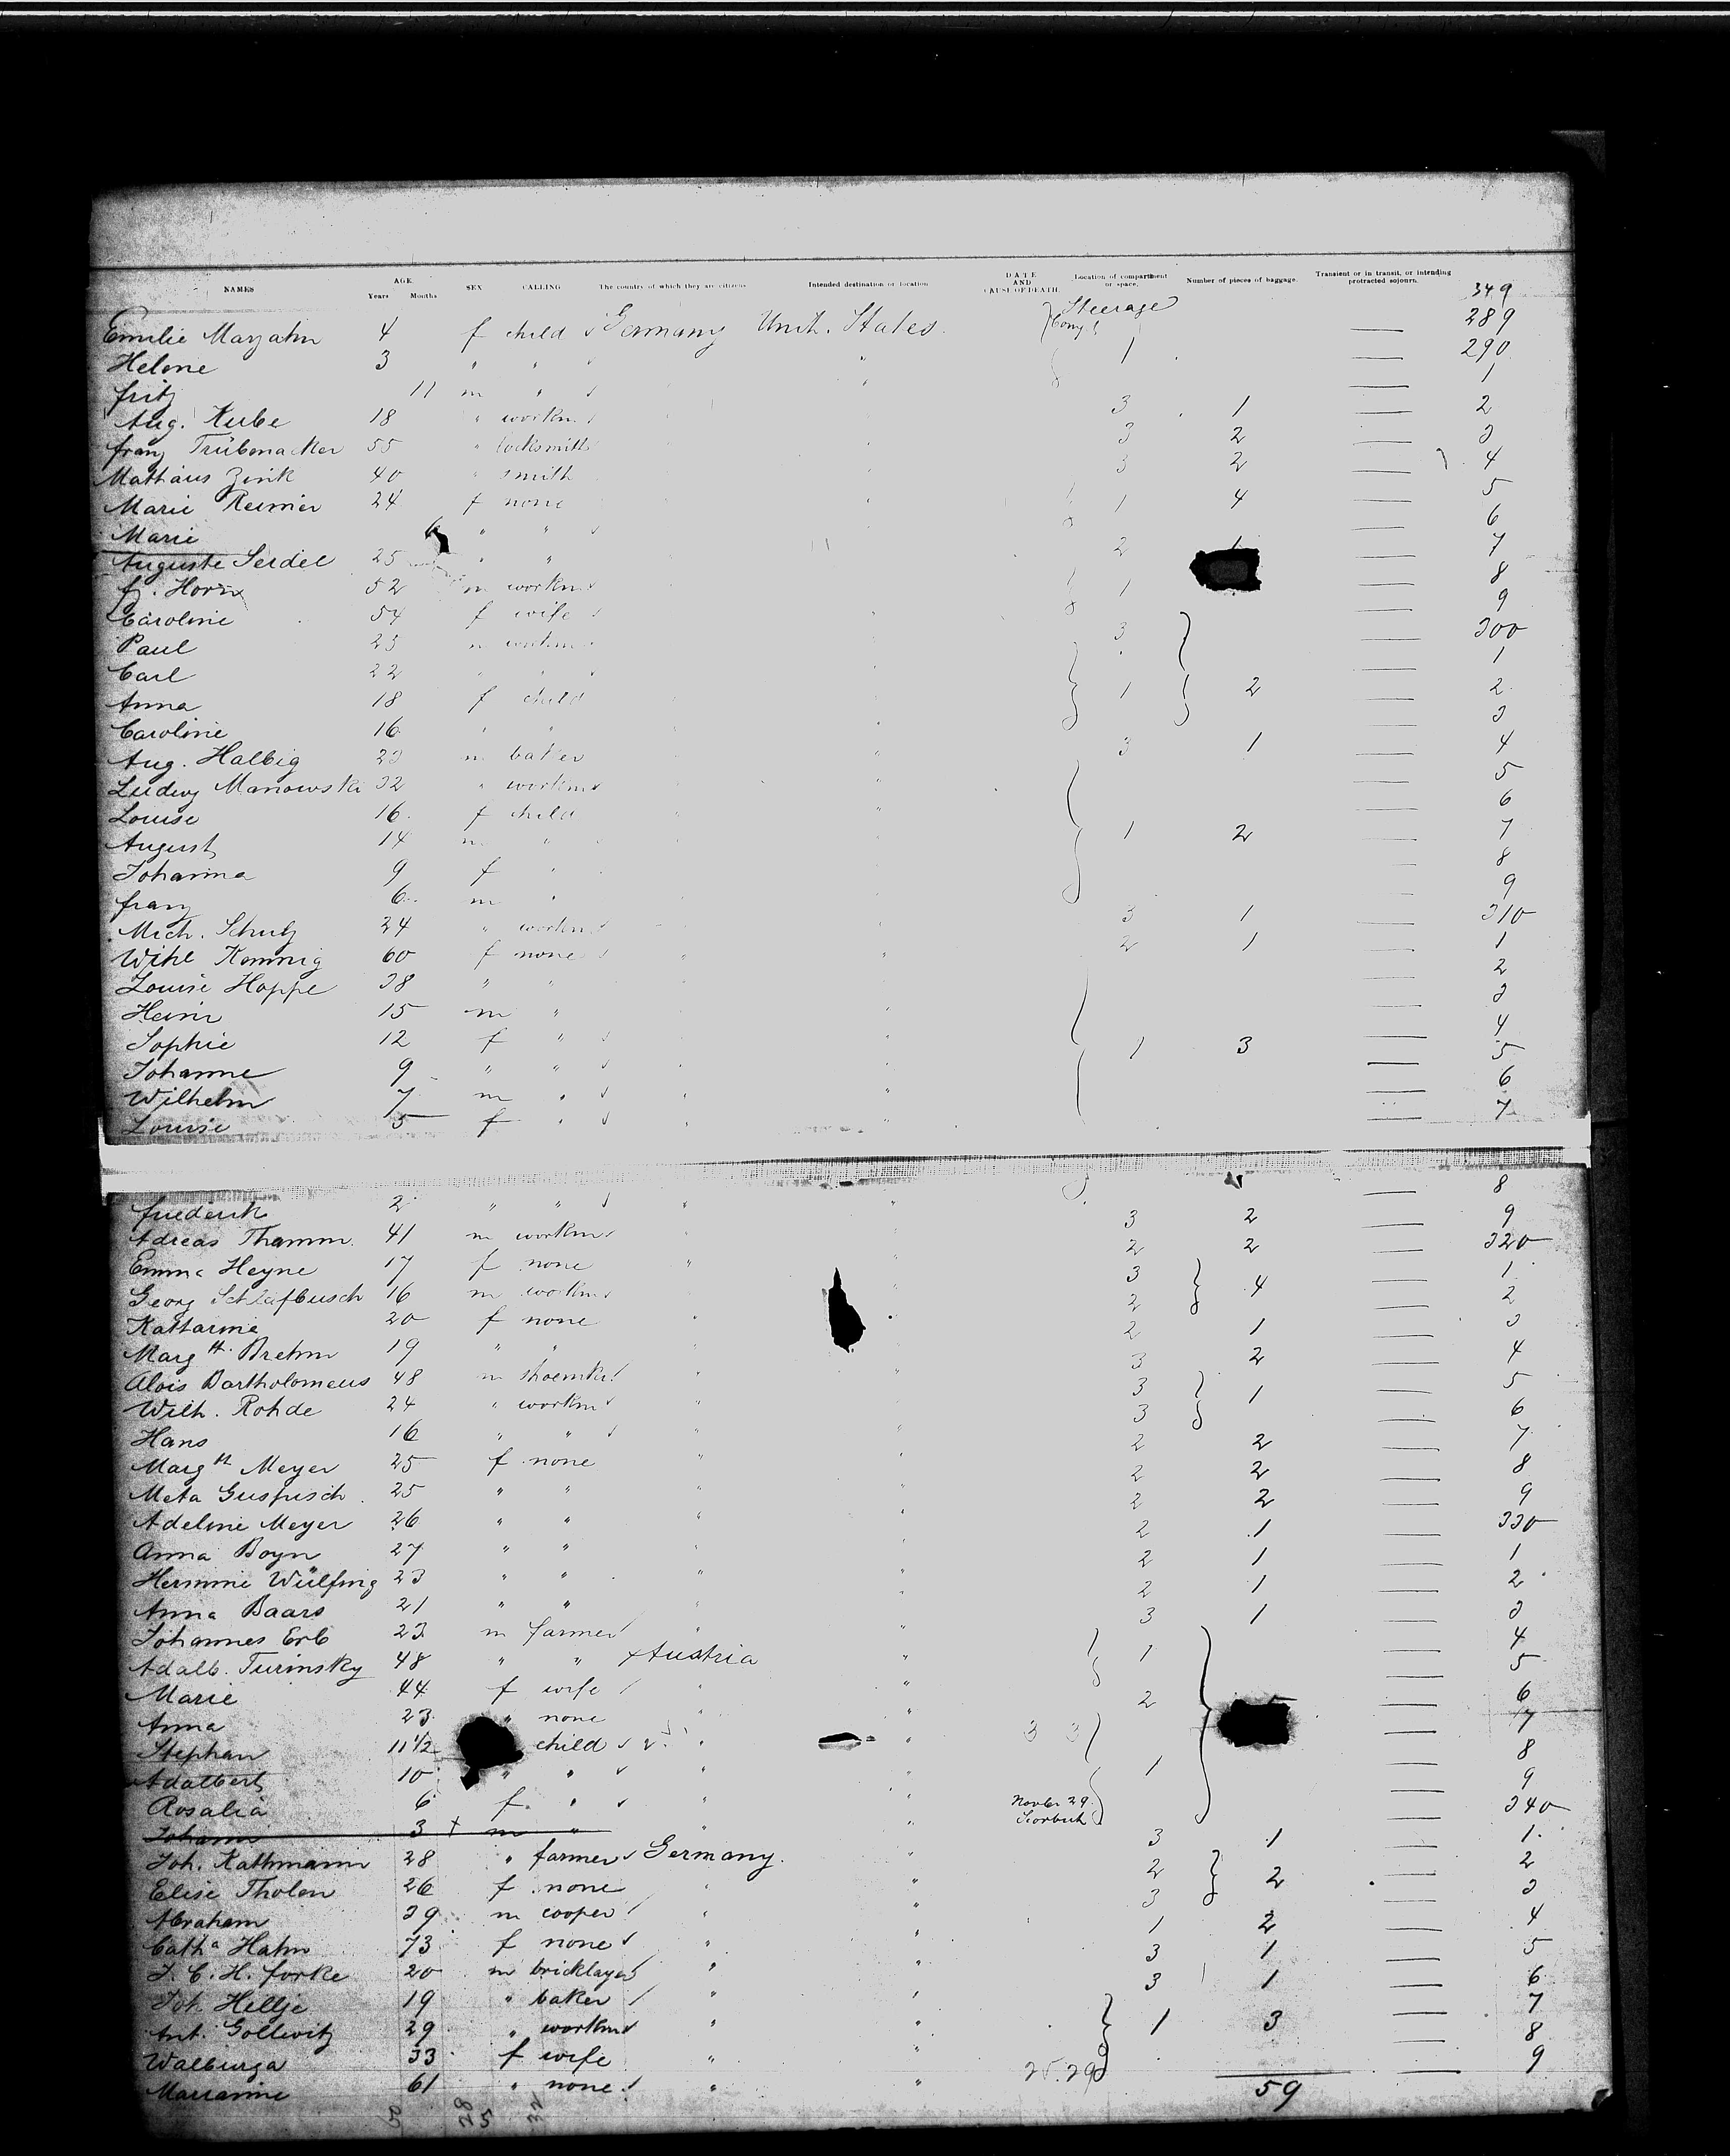 NAMES AGE Years Months SEX CALLING The country of which they are citizens Intended destination or location DATE AND CAUSE OF DEATH. Location of compartment or space. Number of pieces of baggage. Transient or in transit, or intending protracted sojourn.
349
Emilie Marzahn 4 f child Germany Unit. States Steerage 289
Helene 3 " " " 1 — 290
fritz 11 m " " — 1
Aug. Kube 18 " workm 3 1 — 2
franz Trübenacker 55 " locksmith 3 2 — 3
Mathäus Zink 40 " smith 3 2 — 4
Marie Reimer 24 f none 1 4 — 5
Marie 6 " " — 6
Auguste Seidel 25 " " 2 — 7
f. Horn 52 m workm 1 — 8
Caroline 54 f wife — 9
Paul 23 m workm 3 — 300
Carl 22 " " — 1
Anna 18 f child 1 2 — 2
Caroline 16 " " — 3
Aug. Halbig 23 m baker 3 1 — 4
Ludwg Manowska 32 " workm — 5
Louise 16 f child " — 6
August 14 m " 1 2 — 7
Johanna 9 f " — 8
franz 6 m " — 9
Mich. Schulz 24 " workm 3 1 — 310
Wihe Kemnig 60 f none " " 2 1 — 1
Louise Hoppe 38 " " — 2
Heinr 15 m " " — 3
Sophie 12 f " " 1 3 — 4
Johanne 9 " " " — 5
Wilhelm 7 m " " — 6
Louise 5 f " " — 7
frederik 2 " " " " — 8
Adreas Thamm 41 m workm 3 2 — 9
Emma Heyne 17 f none " " 2 2 — 320
Georg Schlafbusch 16 m workm 3 4 — 1
Kattarine 20 f none " " 2 — 2
Marg th. Brehm 19 " " 2 1 — 3
Alois Bartholomeus 48 m shoemkr " " 3 2 — 4
Wilh. Rohde 24 " workm " 3 1 — 5
Hans 16 " " " " 3 — 6
Marg th Meyer 25 f none " " 2 2 — 7
Meta Guspisch 25 " " " " 2 2 — 8
Adeline Meyer 26 " " " " 2 2 — 9
Anna Boyn 27 " " " " 2 1 — 330
Hermine Wülfing 23 " " " " 2 1 — 1
Anna Baars 21 " " " " 2 1 — 2
Johannes Erb 23 m farmer " " 3 1 — 3
Adalb. Turinsky 48 " " Austria " 1 — 4
Marie 44 f wife " " — 5
Anna 23 " none " " 2 — 6
Stephan 11 1/2 child " " 3 3 — 7
Adalbert 10 " " " " 1 — 8
Rosalia 6 f " " " — 9
Johann 3 + m " " " Novbr 29. Scorbut — 340
Joh. Kathmann 28 " farmer Germany " 3 1 — 1
Elise Tholen 26 f none " " 2 2 — 2
Abraham 39 m cooper " " 3 — 3
Catha Hahn 73 f none " " 1 2 — 4
J. C. H. forke 20 m bricklayer " " 3 1 — 5
Joh. Hellje 19 " baker " " 3 1 — 6
Ant. Gollwitz 29 " workm " " 1 3 — 7
Walburga 33 f wife " " — 8
Marianne 61 " none " " 25.29 — 9
59
50 28 5 32